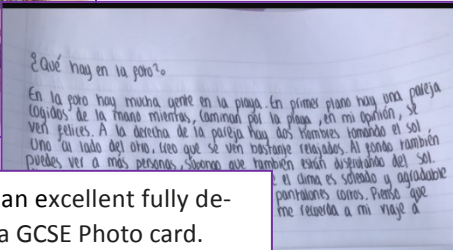 ¿Qué hay en la foto?
En la foto hay mucha gente en la playa. En primer plano hay una pareja
cogidos de la mano mientras, caminan por la playa, en mi opinión, se
ven felices. A la derecha de la pareja hay dos hombres tomando el sol
uno al lado del otro, creo que se ven bastante relajados. Al fondo también
puedes ver a más personas, supongo que también están disfrutando del sol.
e el clima es soleado y agradable
pantalones cortos. Pienso que
me recuerda a mi viaje a
an excellent fully de-
a GCSE Photo card.